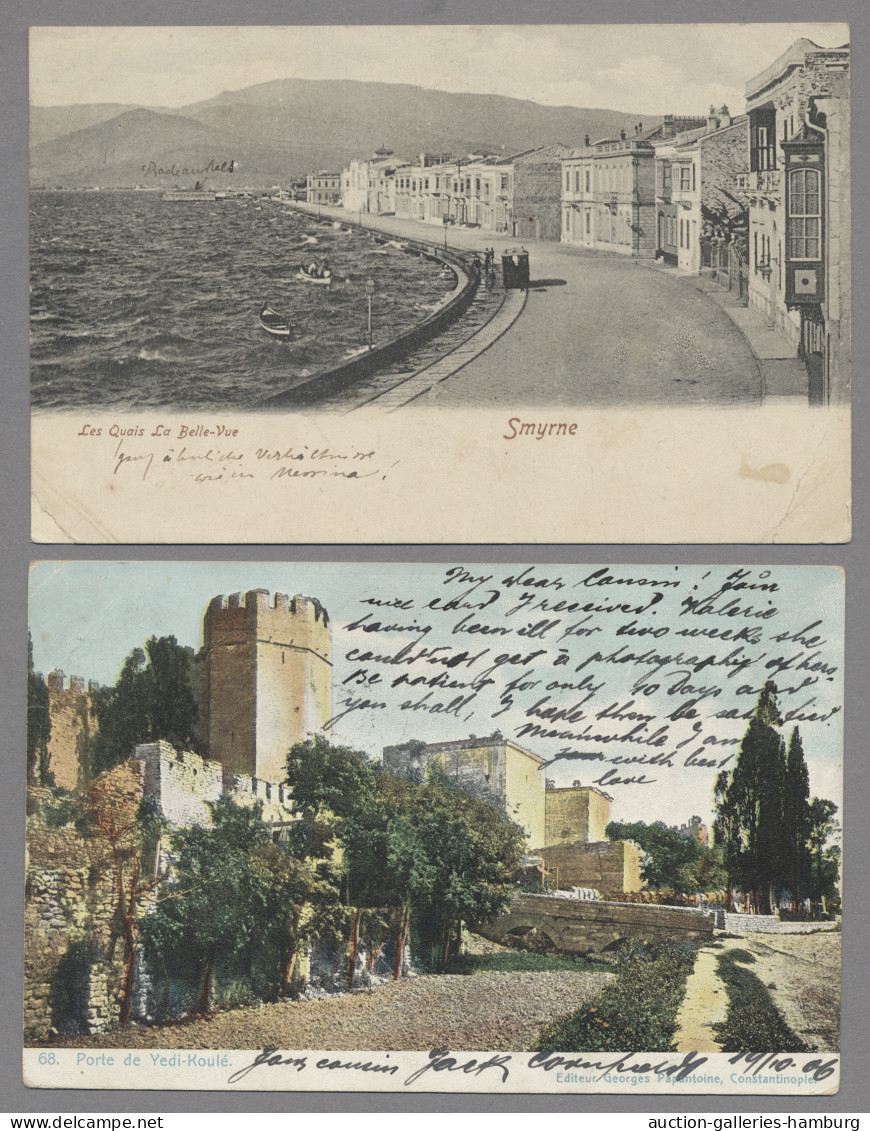 Badeanstalt
Les Quais La Belle-Vue
Smyrne
ganz ähnliche Verhältnisse
wie in Messina!
My dear Cousin! Your
nice card I received. Valerie
having been ill for two weeks she
could not get a photography of hers
Be patient for only 10 Days and
you shall, I hope then be satisfied
Meanwhile I am
with best
love
68. Porte de Yedi-Koulé.
Your cousin Jack Cornfield
19/10.06
Editeur Georges Papantoine, Constantinople.
auction-galleries-hamburg.com